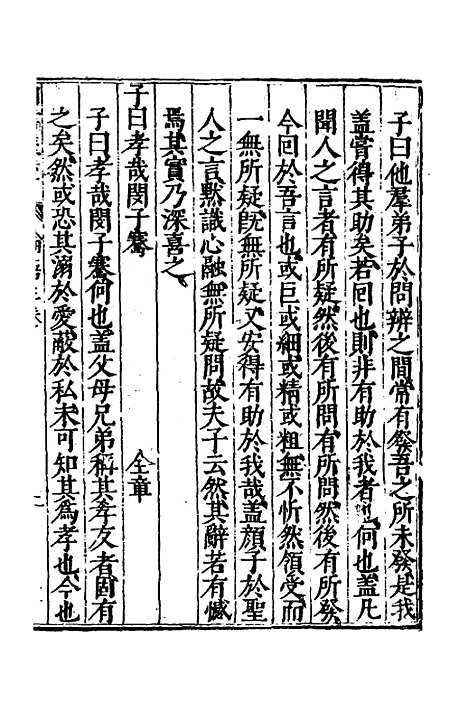 子曰他羣弟子於問辨之間常有發吾之所未發是我
盖嘗得其助矣若囘也則非有助於我者也何也盖凡
聞人之言者有所疑然後有所問有所問然後有所發
今囘於吾言也或巨或細或精或粗無不忻然領受而
一無所疑旣無所疑又安得有助於我哉盖顔子於聖
人之言默識心融無所疑問故夫子云然其辭若有憾
焉其實乃深喜之
子曰孝哉閔子騫　全章
子曰孝哉閔子騫何也盖父母兄弟稱其孝友者固有
之矣然或恐其溺於愛蔽於私未可知其爲孝也今也